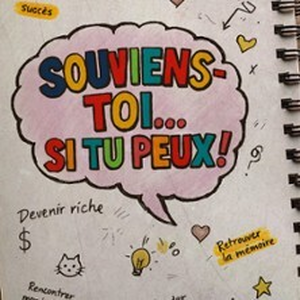 succès
SOUVIENS-
TOI...
SI TU PEUX!
Devenir riche
$
Retrouver
la mémoire
Rencontrer